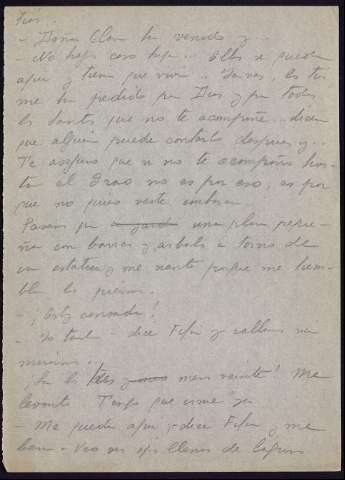 - Doña Clara ha venido y...
- No hagas caso hija... Ellos se quedan
aquí y tienen que vivir... Ya ves, las tías
me han pedido por Dios y por todos
los santos que no te acompañe... dicen
que alguien puede contarlo después y...
Te aseguro que si no te acompaño has-
ta el Grao no es por eso, es por
que no quiero verte embarcar.
Pasamos por una plaza peque-
ña con bancos y árboles en torno de
una estatua y me siento porque me tiem-
blan las piernas.
- ¡Estás cansada!
- No tanto - dice Fifa y callamos un
momento...
¡Son las tres menos veinte! Me
levanto. Tengo que irme ya
- Me quedo aquí - dice Fifa y me
besa - Veo sus ojos llenos de lágrimas